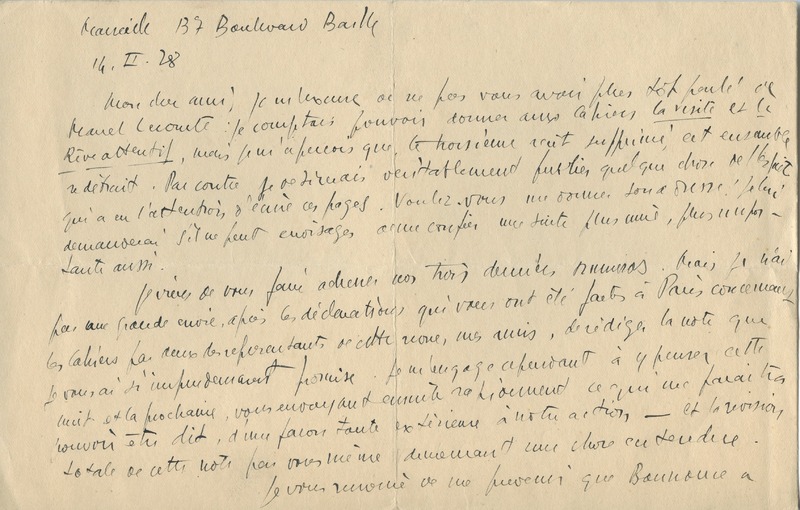 Marseille 137 Boulevard Baille
14. II. 28
Mon cher ami, je m'excuse de ne pas vous avoir plus tôt parlé de
Marcel Lecomte : je comptais pouvoir donner aux Cahiers la visite et le
Rêve attentif, mais je m'aperçois que, le troisième récit supprimé, cet ensemble
se détruit. Par contre je désirerais véritablement publier quelque chose de l'esprit
qui a eu l'attention d'écrire ces pages. Voulez-vous me donner son adresse ? je lui
demanderai s'il ne peut envisager de me confier une suite plus unie, plus impor-
tante aussi.
Je viens de vous faire adresser nos trois derniers numéros. Mais je n'ai
pas une grande envie, après les déclarations qui vous ont été faites à Paris concernant
les Cahiers par deux des représentants de cette revue, mes amis, de rédiger la note que
je vous ai si imprudemment promise. Je m'engage cependant à y penser cette
nuit et la prochaine, vous envoyant ensuite rapidement ce qui me paraîtra
pouvoir être dit, d'une façon toute extérieure à notre action — et la révision
totale de cette note par vous-même demeurant une chose entendue.
Je vous remercie de me prévenir que Bonnance a